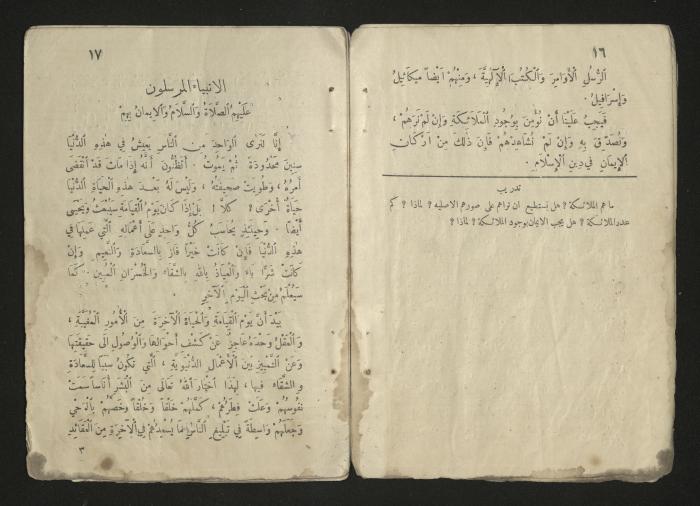 ١٦
الرُّسُلِ الْأَوَامِرَ وَالْكُتُبَ الْإِلَهِيَّةَ ، وَمِنْهُمْ أَيْضًا مِيكَائِيلُ
وَإِسْرَافِيلُ .
فَيَجِبُ عَلَيْنَا أَنْ نُؤْمِنَ بِوُجُودِ الْمَلَائِكَةِ وَإِنْ لَمْ نَرَهُمْ ،
وَنُصَدِّقَ بِهِ وَإِنْ لَمْ نُشَاهِدْهُمْ فَإِنَّ ذَلِكَ مِنْ أَرْكَانِ
الْإِيمَانِ فِي دِينِ الْإِسْلَامِ .
تدريب
ما هم الملائكة ؟ هل نستطيع ان نراهم على صورهم الاصليه ؟ لماذا ؟ كم
عدد الملائكة ؟ هل يجب الايمان بوجود الملائكة ؟ لماذا ؟
١٧
الانبياء المرسلون
عَلَيْهِمُ الصَّلَاةُ وَالسَّلَامُ وَالْإِيمَانُ بِهِمْ
إِنَّا لَنَرَى الْوَاحِدَ مِنَ النَّاسِ يَعِيشُ فِي هَذِهِ الدُّنْيَا
سِنِينَ مَحْدُودَةً ثُمَّ يَمُوتُ . أَتَظُنُّونَ أَنَّهُ إِذَا مَاتَ قَدِ انْقَضَى
أَمْرُهُ ، وَطُوِيَتْ صَحِيفَتُهُ ، وَلَيْسَ لَهُ بَعْدَ هَذِهِ الْحَيَاةِ الدُّنْيَا
حَيَاةٌ أُخْرَى ؟ كَلَّا ! بَلْ إِذَا كَانَ يَوْمُ الْقِيَامَةِ سَيُبْعَثُ وَيَحْيَى
أَيْضًا . وَحِينَئِذٍ يُحَاسَبُ كُلُّ وَاحِدٍ عَلَى أَعْمَالِهِ الَّتِي عَمِلَهَا فِي
هَذِهِ الدُّنْيَا فَإِنْ كَانَتْ خَيْرًا فَازَ بِالسَّعَادَةِ وَالنَّعِيمِ وَإِنْ
كَانَتْ شَرًّا بَاءَ وَالْعِيَاذُ بِاللهِ بِالشَّقَاءِ وَالْخُسْرَانِ الْمُبِينِ . كَمَا
سَيُعْلَمُ مِنْ بَحْثِ الْيَوْمِ الْآخِرِ
بَيْدَ أَنَّ يَوْمَ الْقِيَامَةِ وَالْحَيَاةَ الْآخِرَةَ مِنَ الْأُمُورِ الْمُغَيَّبَةِ ،
وَالْعَقْلُ وَحْدَهُ عَاجِزٌ عَنْ كَشْفِ أَحْوَالِهَا وَالْوُصُولِ إِلَى حَقِيقَتِهَا
وَعَنِ التَّمْيِيزِ بَيْنَ الْأَعْمَالِ الدُّنْيَوِيَّةِ ، الَّتِي تَكُونُ سَبَبًا لِلسَّعَادَةِ
وَالشَّقَاءِ فِيهَا ، لِهَذَا اخْتَارَ اللهُ تَعَالَى مِنَ الْبَشَرِ أُنَاسًا سَمَتْ
نُفُوسُهُمْ وَعَلَتْ فِطَرُهُمْ ، كَمَّلَهُمْ خَلْقًا وَخُلُقًا وَخَصَّهُمْ بِالْوَحْيِ
وَجَعَلَهُمْ وَاسِطَةً فِي تَبْلِيغِ النَّاسِ مَا يُسْعِدُهُمْ فِي الْآخِرَةِ مِنَ الْعَقَائِدِ
٣